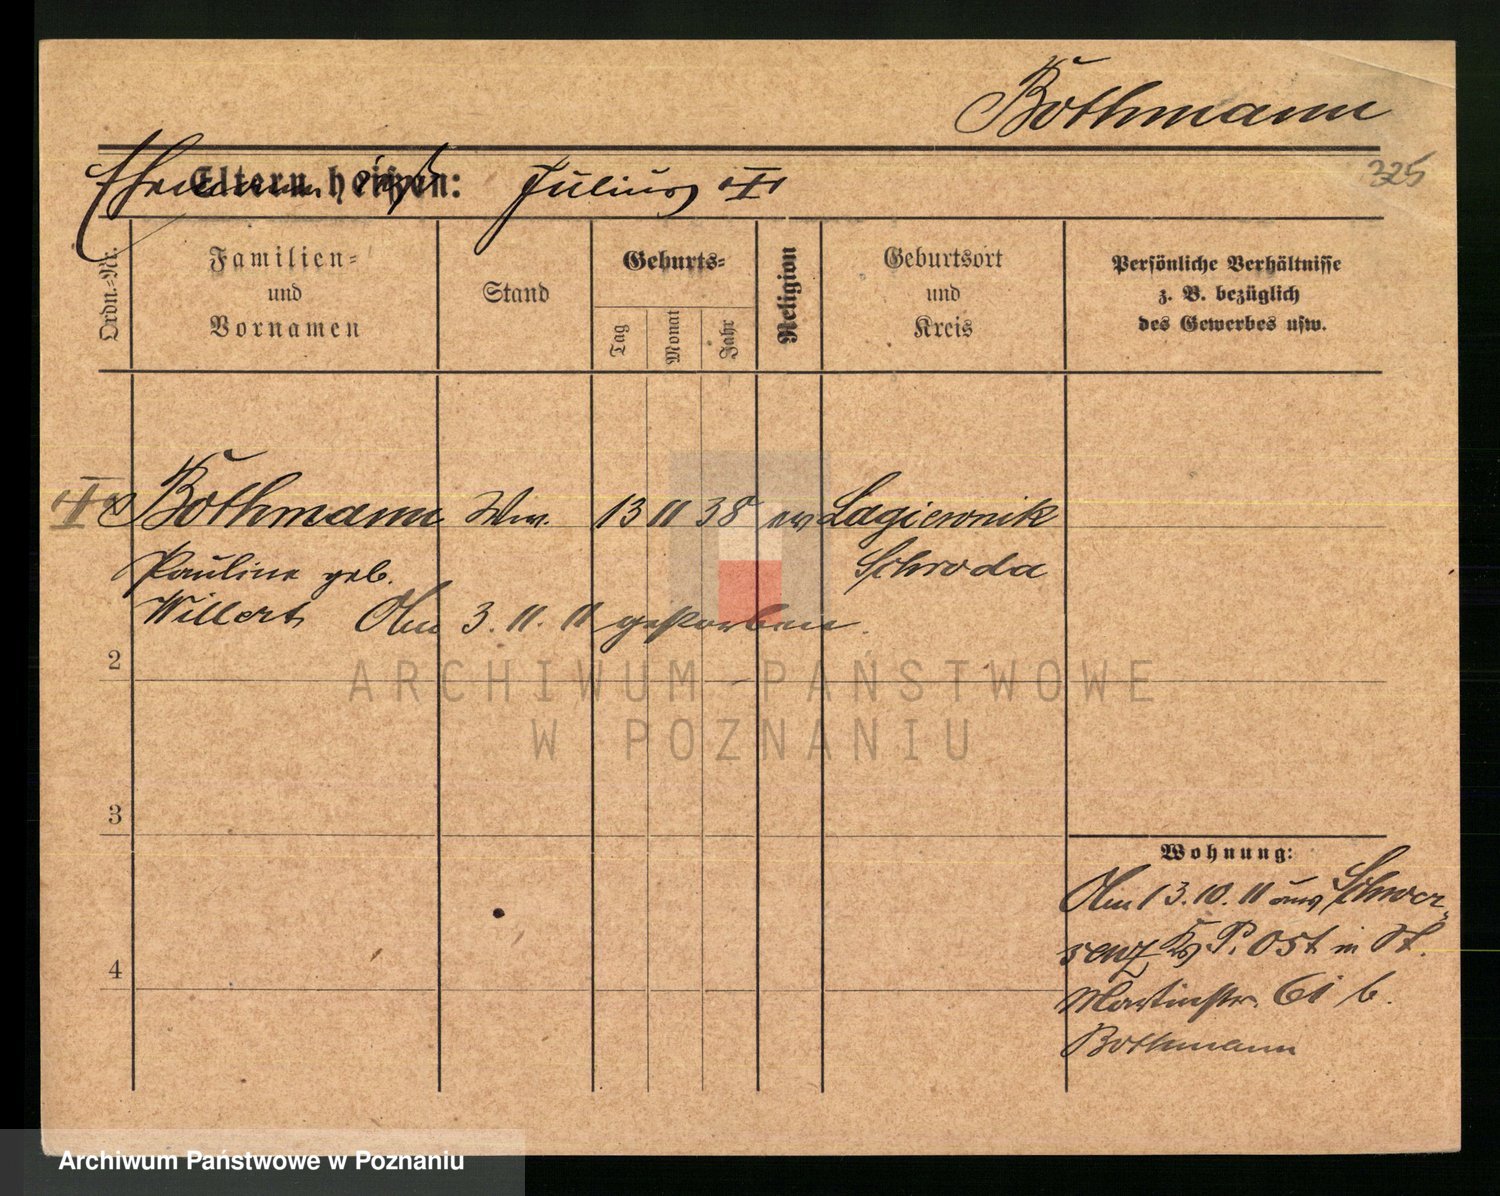 Bothmann
325
Eltern heißen:
Ehemann hieß Julius
Ordn.-Nr.
Familien-
und
Vornamen
Stand
Geburts-
Tag
Monat
Jahr
Religion
Geburtsort
und
Kreis
Persönliche Verhältnisse
z. B. bezüglich
des Gewerbes usw.
Bothmann Ww. 13 11 38 ev Lagiewnik
Pauline geb. Schroda
Willert Am 3. 11. 11 gestorben.
2
3
4
Wohnung:
Am 13. 10. 11 aus Schwer-
senz Kr P. Ost in St.
Martinstr. 61 b.
Bothmann
ARCHIWUM PAŃSTWOWE
W POZNANIU
Archiwum Państwowe w Poznaniu